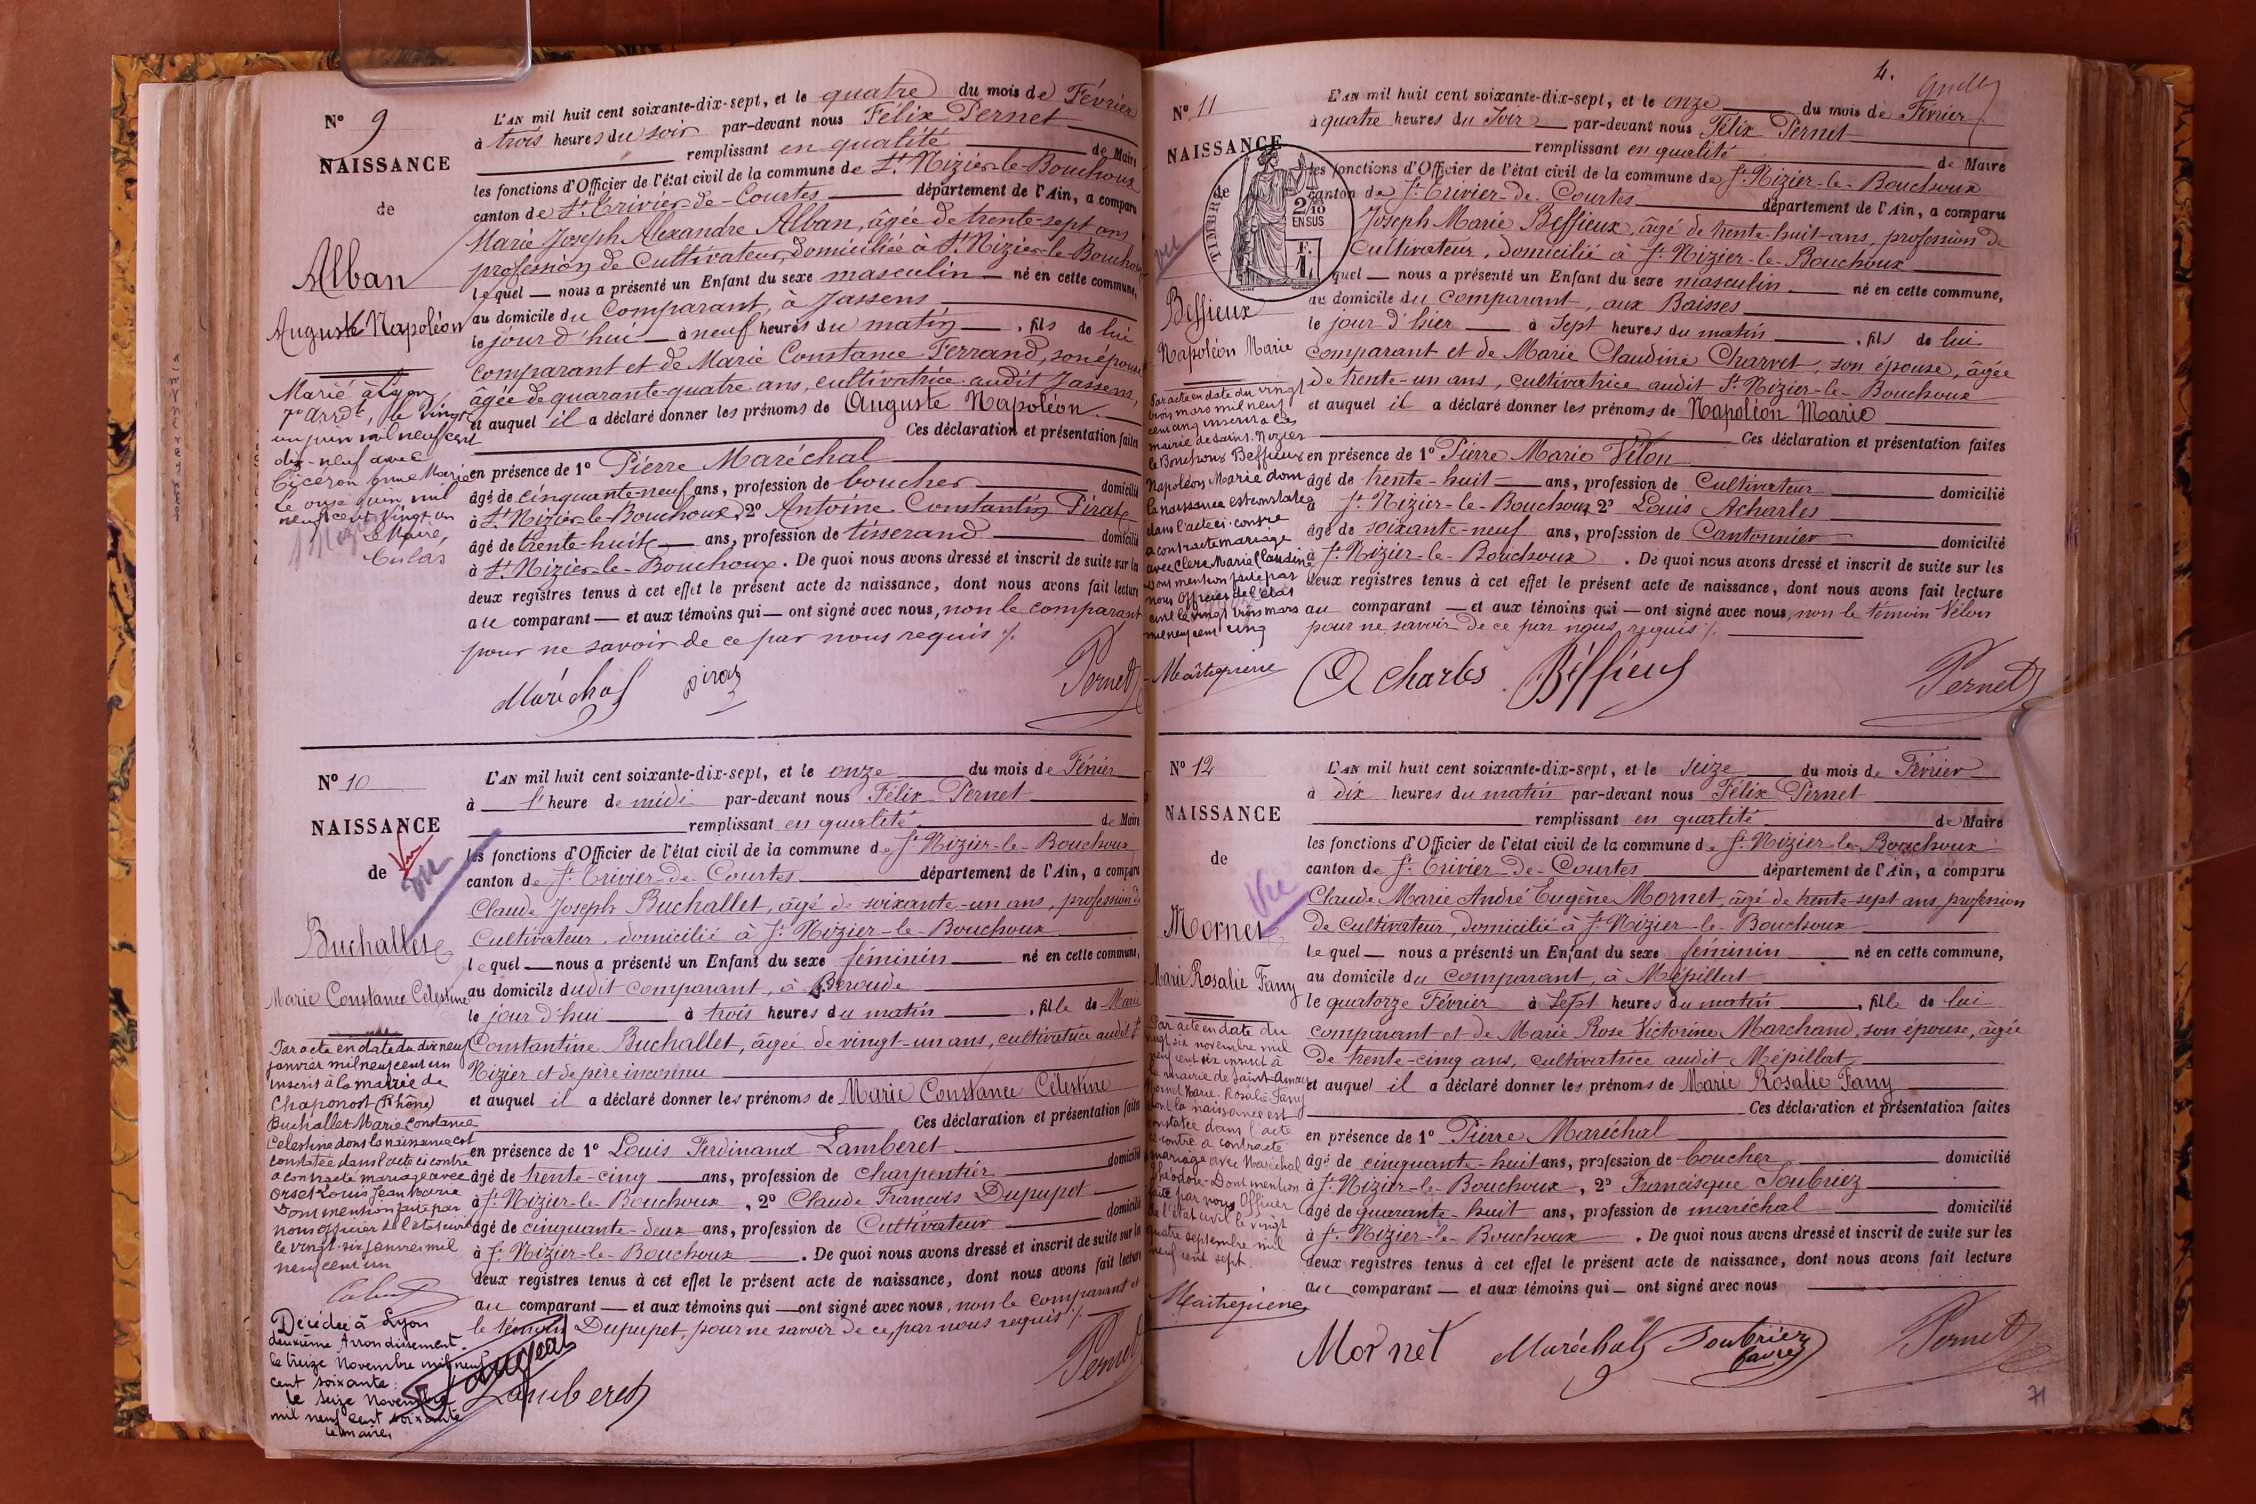 N° 9
NAISSANCE
de
Alban
Auguste Napoléon
Marié à Lyon
arrdt, le vingt
un juin mil neuf cent
dix-neuf avec
Ciceron Marie
Le onze juin mil
neuf cent vingt un
Le Maire,
L'AN mil huit cent soixante-dix-sept, et le quatre du mois de Février
à trois heures du soir par-devant nous Félix Pernet
remplissant en qualité de Maire
les fonctions d'Officier de l'état civil de la commune de St Nizier-le-Bouchoux
canton de St Trivier-de-Courtes département de l'Ain, a comparu
Marie Joseph Alexandre Alban, âgée de trente-sept ans
profession de Cultivateur, domiciliée à St Nizier-le-Bouchoux
lequel — nous a présenté un Enfant du sexe masculin — né en cette commune,
au domicile du Comparant, à Jassens
le jour d'hui — à neuf heures du matin — , fils de lui
comparant et de Marie Constance Ferrand, son épouse
âgée de quarante-quatre ans, cultivatrice audit Jassens,
et auquel il a déclaré donner les prénoms de Auguste Napoléon.
Ces déclaration et présentation faites
en présence de 1° Pierre Maréchal
âgé de cinquante-neuf ans, profession de boucher domicilié
à St Nizier-le-Bouchoux, 2° Antoine Constantin Pirat
âgé de trente-huit — ans, profession de tisserand domicilié
à St Nizier-le-Bouchoux. De quoi nous avons dressé et inscrit de suite sur les
deux registres tenus à cet effet le présent acte de naissance, dont nous avons fait lecture
au comparant — et aux témoins qui — ont signé avec nous, non le comparant
pour ne savoir de ce par nous requis ./.
Maréchal Pirat Pernet
N° 10
NAISSANCE
de
Vu
Vu
Buchallet
Marie Constance Célestine
Par acte en date du dix neuf
janvier mil neuf cent un
inscrit à la mairie de
Chaponost (Rhône)
Buchallet Marie Constance
Celestine dont la naissance est
constatée dans l'acte ci contre
a contracté mariage avec
Orset Louis Jean Marie
Dont mention faite par
nous officier de l'état civil
le vingt-six janvier mil
neuf cent un
Décédée à Lyon
deuxième Arrondissement
le treize Novembre mil neuf
cent soixante.
le seize Novembre
mil neuf cent soixante
le maire,
L'AN mil huit cent soixante-dix-sept, et le onze du mois de Février
à l'heure de midi par-devant nous Félix Pernet
remplissant en qualité de Maire
les fonctions d'Officier de l'état civil de la commune de St Nizier-le-Bouchoux
canton de St Trivier-de-Courtes département de l'Ain, a comparu
Claude Joseph Buchallet, âgé de soixante-un ans, profession de
Cultivateur, domicilié à St Nizier-le-Bouchoux
lequel — nous a présenté un Enfant du sexe féminin — né en cette commune,
au domicile dudit comparant, à Béroude
le jour d'hui à trois heures du matin , fille de Marie
Constantine Buchallet, âgée de vingt-un ans, cultivatrice audit St
Nizier et de père inconnu
et auquel il a déclaré donner les prénoms de Marie Constance Célestine
Ces déclaration et présentation faites
en présence de 1° Louis Ferdinand Lamberet
âgé de trente-cinq ans, profession de Charpentier domicilié
à St Nizier-le-Bouchoux, 2° Claude François Dupupet
âgé de cinquante-deux ans, profession de Cultivateur domicilié
à St Nizier-le-Bouchoux. De quoi nous avons dressé et inscrit de suite sur les
deux registres tenus à cet effet le présent acte de naissance, dont nous avons fait lecture
au comparant — et aux témoins qui — ont signé avec nous, non le comparant et
le témoin Dupupet, pour ne savoir de ce, par nous requis ./.
Lamberet Pernet
4.
N° 11
NAISSANCE
de
TIMBRE
2/10
EN SUS
F.
1.
vu
Beffieux
Napoléon Marie
Par acte en date du vingt
trois mars mil neuf
cent cinq inscrit à la
mairie de Saint-Nizier
le Bouchoux Beffieux
Napoléon Marie dont
la naissance est constatée
dans l'acte ci-contre
a contracté mariage
avec Clerc Marie Claudine
Dont mention faite par
nous Officier de l'état
civil le vingt trois mars
mil neuf cent cinq
L'AN mil huit cent soixante-dix-sept, et le onze du mois de Février
à quatre heures du soir — par-devant nous Félix Pernet
remplissant en qualité de Maire
les fonctions d'Officier de l'état civil de la commune de St Nizier-le-Bouchoux
canton de St Trivier-de-Courtes département de l'Ain, a comparu
Joseph Marie Beffieux, âgé de trente-huit ans, profession de
Cultivateur, domicilié à St Nizier-le-Bouchoux
lequel — nous a présenté un Enfant du sexe masculin né en cette commune,
au domicile du comparant, aux Baisses
le jour d'hier — à sept heures du matin , fils de lui
comparant et de Marie Claudine Charvet, son épouse, âgée
de trente-un ans, cultivatrice audit St Nizier-le-Bouchoux
et auquel il a déclaré donner les prénoms de Napoléon Marie
Ces déclaration et présentation faites
en présence de 1° Pierre Marie Vélon
âgé de trente-huit — ans, profession de Cultivateur domicilié
à St Nizier-le-Bouchoux 2° Louis Acharles
âgé de soixante-neuf ans, profession de Cantonnier domicilié
à St Nizier-le-Bouchoux. De quoi nous avons dressé et inscrit de suite sur les
deux registres tenus à cet effet le présent acte de naissance, dont nous avons fait lecture
au comparant — et aux témoins qui — ont signé avec nous, non le témoin Vélon
pour ne savoir de ce par nous requis ./.
Acharles Béffieux Pernet
N° 12
NAISSANCE
de
Vu
Mornet
Marie Rosalie Fany
Par acte en date du
vingt six novembre mil
neuf cent six inscrit à
la mairie de Saint-Amour
Mornet Marie-Rosalie-Fany
dont la naissance est
constatée dans l'acte
ci-contre a contracté
mariage avec Maréchal
Théodore - Dont mention
faite par nous Officier
de l'état civil le vingt
quatre septembre mil
neuf cent sept.
L'AN mil huit cent soixante-dix-sept, et le seize du mois de Février
à dix heures du matin par-devant nous Félix Pernet
remplissant en qualité de Maire
les fonctions d'Officier de l'état civil de la commune de St Nizier-le-Bouchoux
canton de St Trivier-de-Courtes département de l'Ain, a comparu
Claude Marie André Eugène Mornet, âgé de trente-sept ans, profession
de cultivateur, domicilié à St Nizier-le-Bouchoux
lequel — nous a présenté un Enfant du sexe féminin né en cette commune,
au domicile du comparant, à Mépillat
le quatorze Février à sept heures du matin , fille de lui
comparant et de Marie Rose Victorine Marchand, son épouse, âgée
de trente-cinq ans, cultivatrice audit Mépillat
et auquel il a déclaré donner les prénoms de Marie Rosalie Fany
Ces déclaration et présentation faites
en présence de 1° Pierre Maréchal
âgé de cinquante-huit ans, profession de boucher domicilié
à St Nizier-le-Bouchoux, 2° Francisque Soubriez
âgé de quarante-huit ans, profession de maréchal domicilié
à St Nizier-le-Bouchoux. De quoi nous avons dressé et inscrit de suite sur les
deux registres tenus à cet effet le présent acte de naissance, dont nous avons fait lecture
au comparant — et aux témoins qui — ont signé avec nous
Mornet Maréchal Soubriez Pernet
71